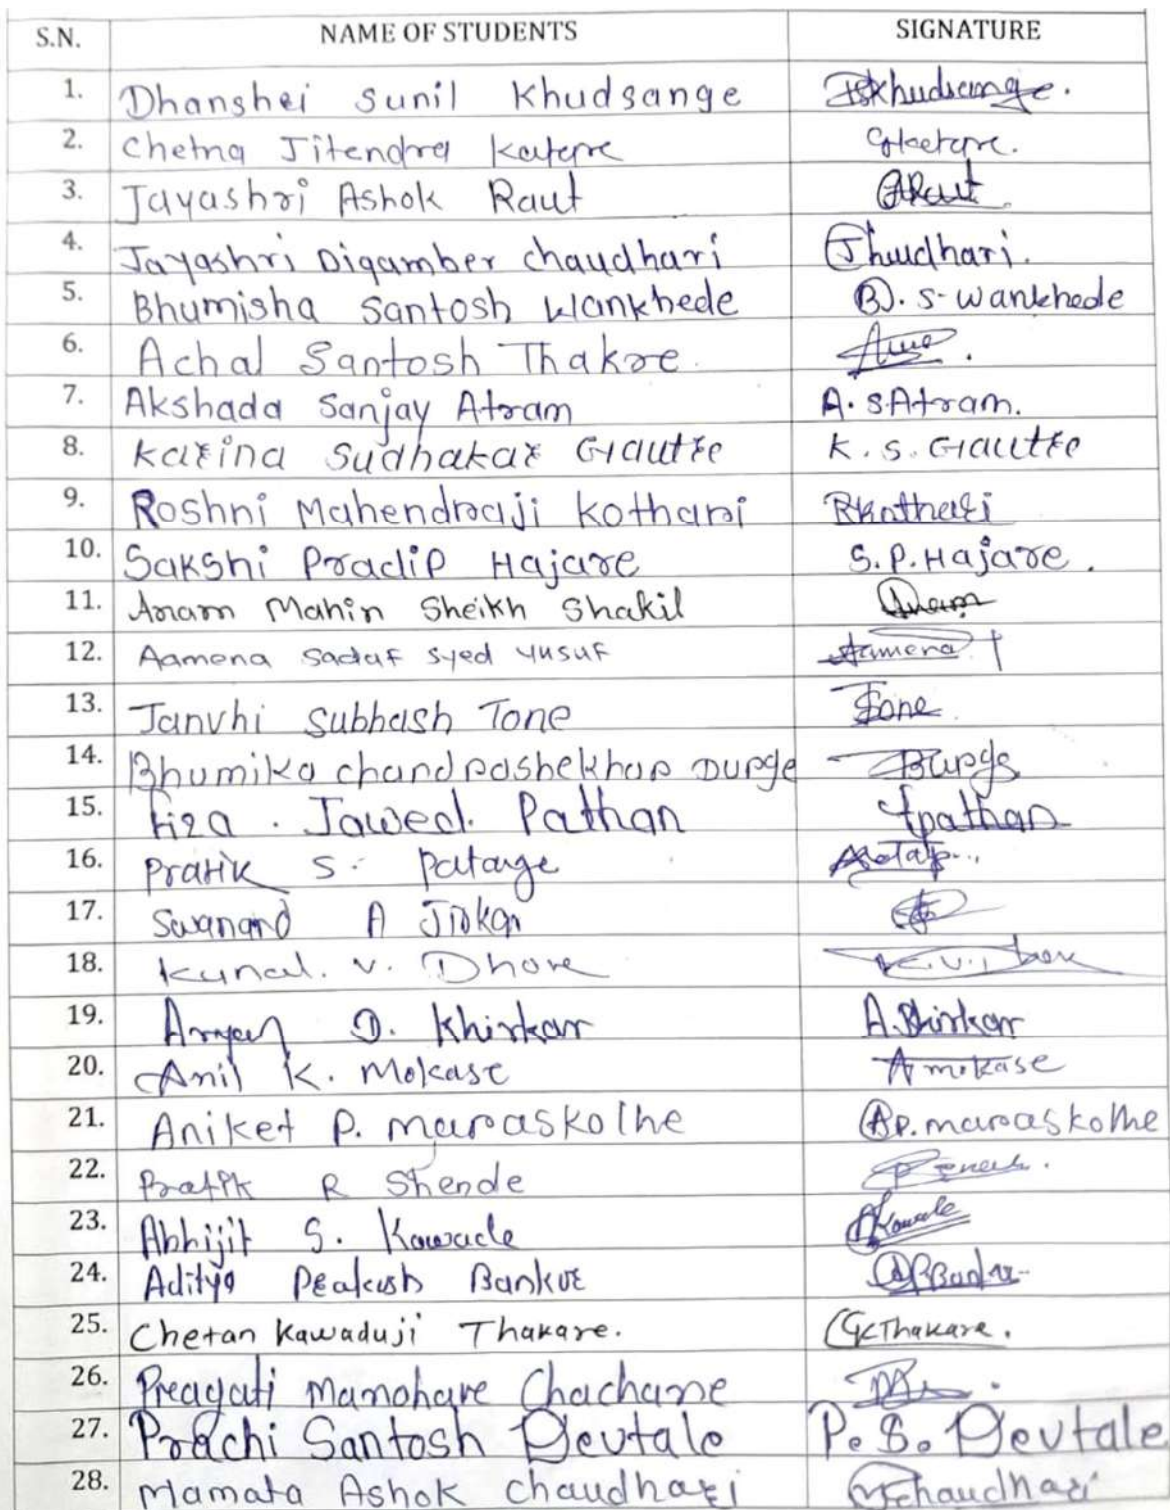 S.N. NAME OF STUDENTS SIGNATURE
1. Dhanshri Sunil Khudsange Dskhudsange.
2. Chetna Jitendra Katore
3. Jayashri Ashok Raut Raut
4. Jayashri Digamber chaudhari Jhudhari.
5. Bhumisha Santosh Wankhede B. S. Wankhede
6. Achal Santosh Thakre
7. Akshada Sanjay Atram A. S. Atram.
8. Karina Sudhakar Gautre K. S. Gautre
9. Roshni Mahendraji Kothari RKothari
10. Sakshi Pradip Hajare S.P. Hajare.
11. Anam Mahin Sheikh Shakil Anam
12. Aamena Sadaf Syed Yusuf Aamena
13. Janvhi Subhash Tone Tone
14. Bhumika chandrashekhar Durge BDurge
15. Fiza. Jawed. Pathan fpathan
16. Pratik S.
17. Swanand A
18. Kunal. V. Dhore K.V. Dhore
19. Aryan D. Khirkar A. Khirkar
20. Anil K. Mokase A mokase
21. Aniket P. maraskolhe AP. maraskolhe
22. Pratik R Shende
23. Abhijit S. Kawade AKawade
24. Aditya Prakash
25. Chetan Kawaduji Thakare. CKThakare.
26. Pragati Manohare Chachane
27. Prachi Santosh Devtale P. S. Devtale
28. Mamata Ashok chaudhari Mchaudhari